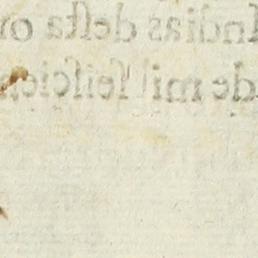 Indias desta
de mil seiscien